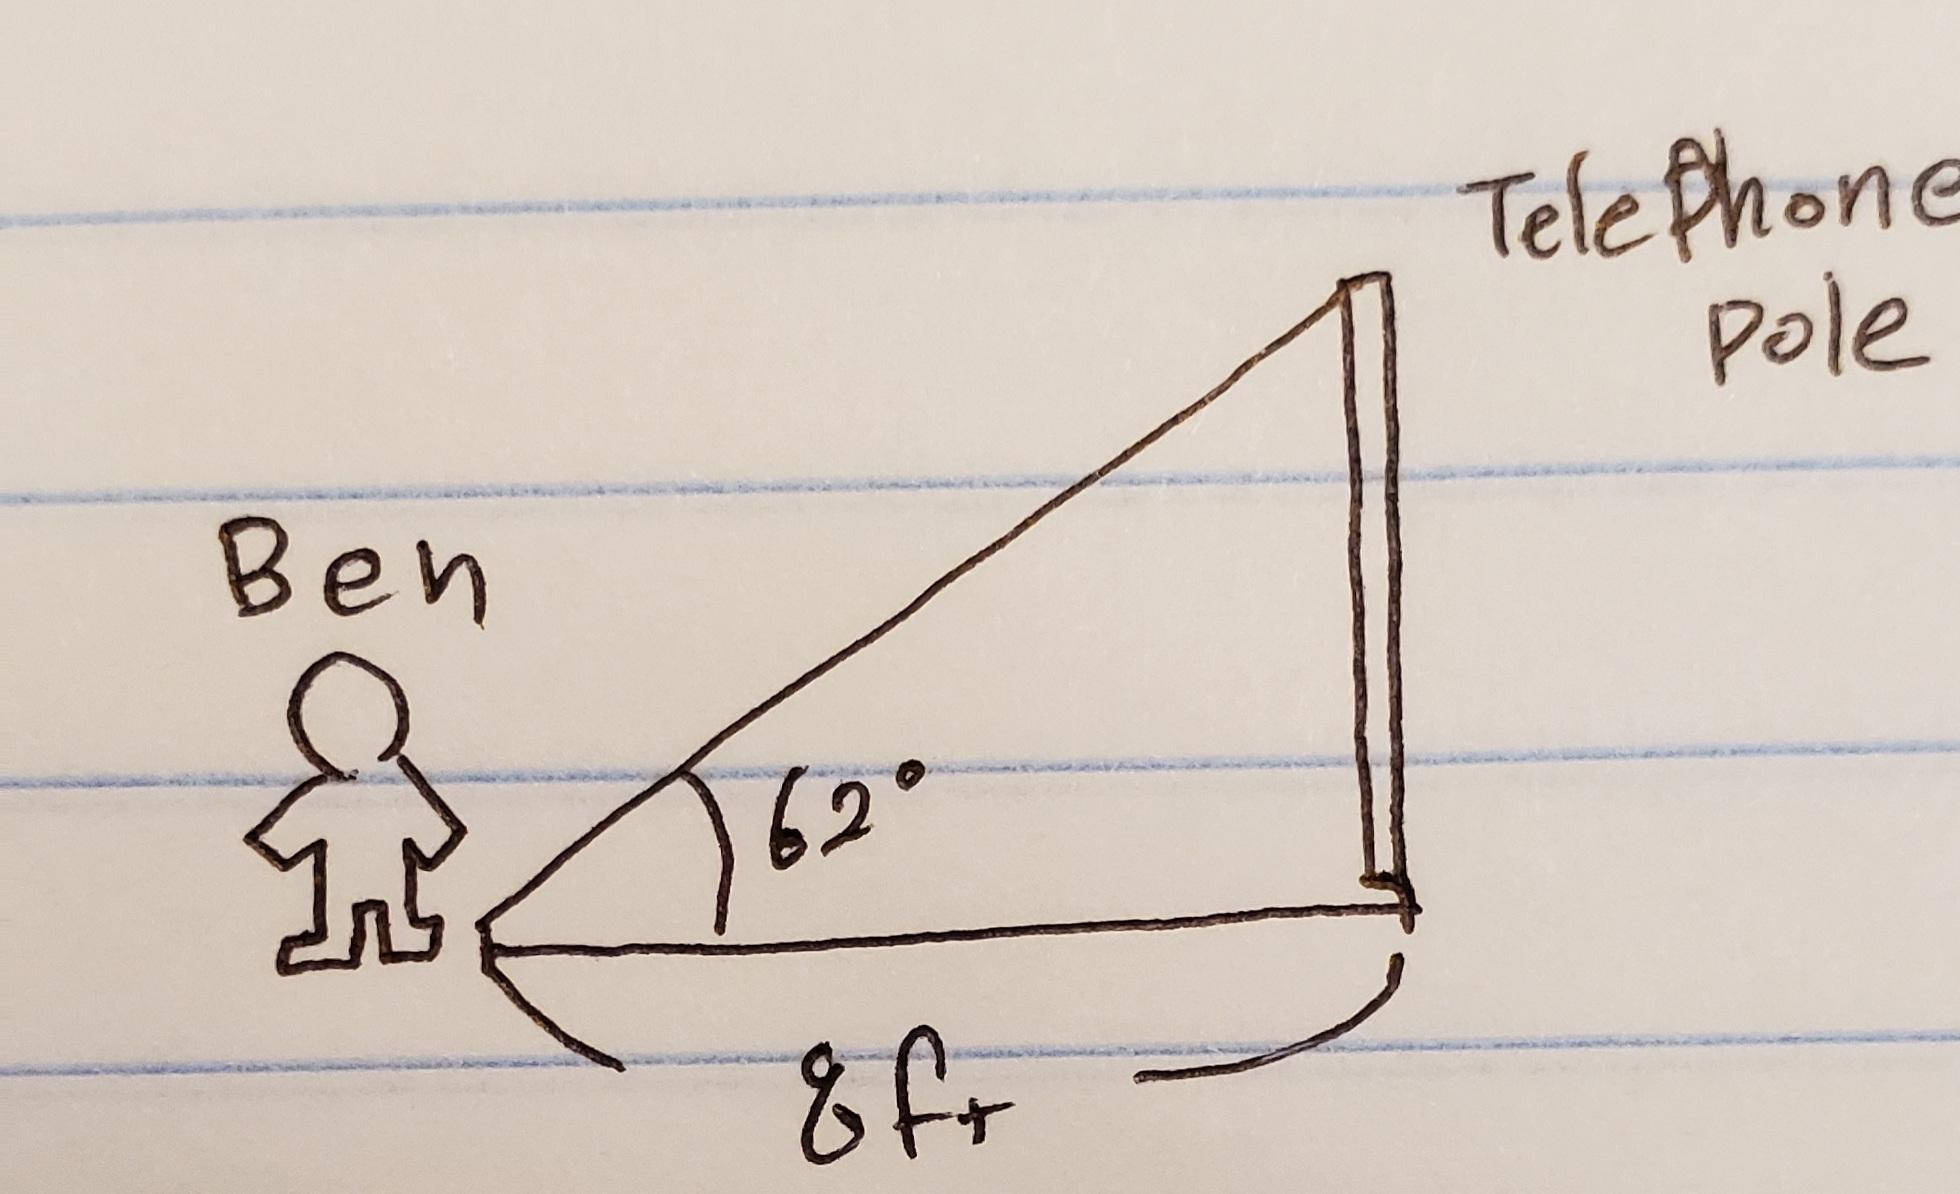 Telephone
pole
Ben
62°
8ft